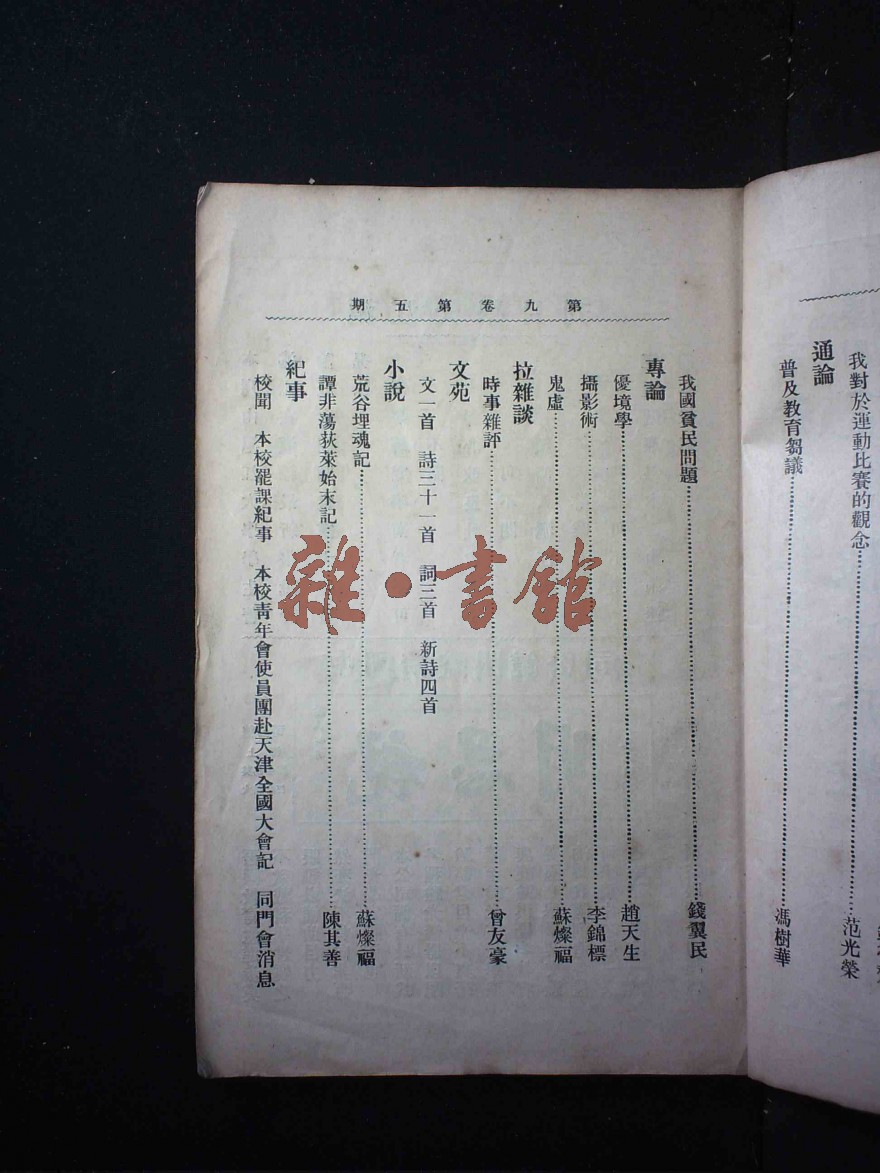 我對於運動比賽的觀念……范光榮
通論
普及教育芻議……馮樹華
第九卷第五期
我國貧民問題……錢翼民
專論
優境學……趙天生
攝影術……李錦標
鬼虛……蘇燦福
拉雜談
時事雜評……曾友豪
文苑
文一首 詩三十一首 詞三首 新詩四首
小說
荒谷埋魂記……蘇燦福
譚非蕩荻萊始末記……陳其善
紀事
校聞 本校罷課紀事 本校靑年會使員團赴天津全國大會記 同門會消息
雜·書館